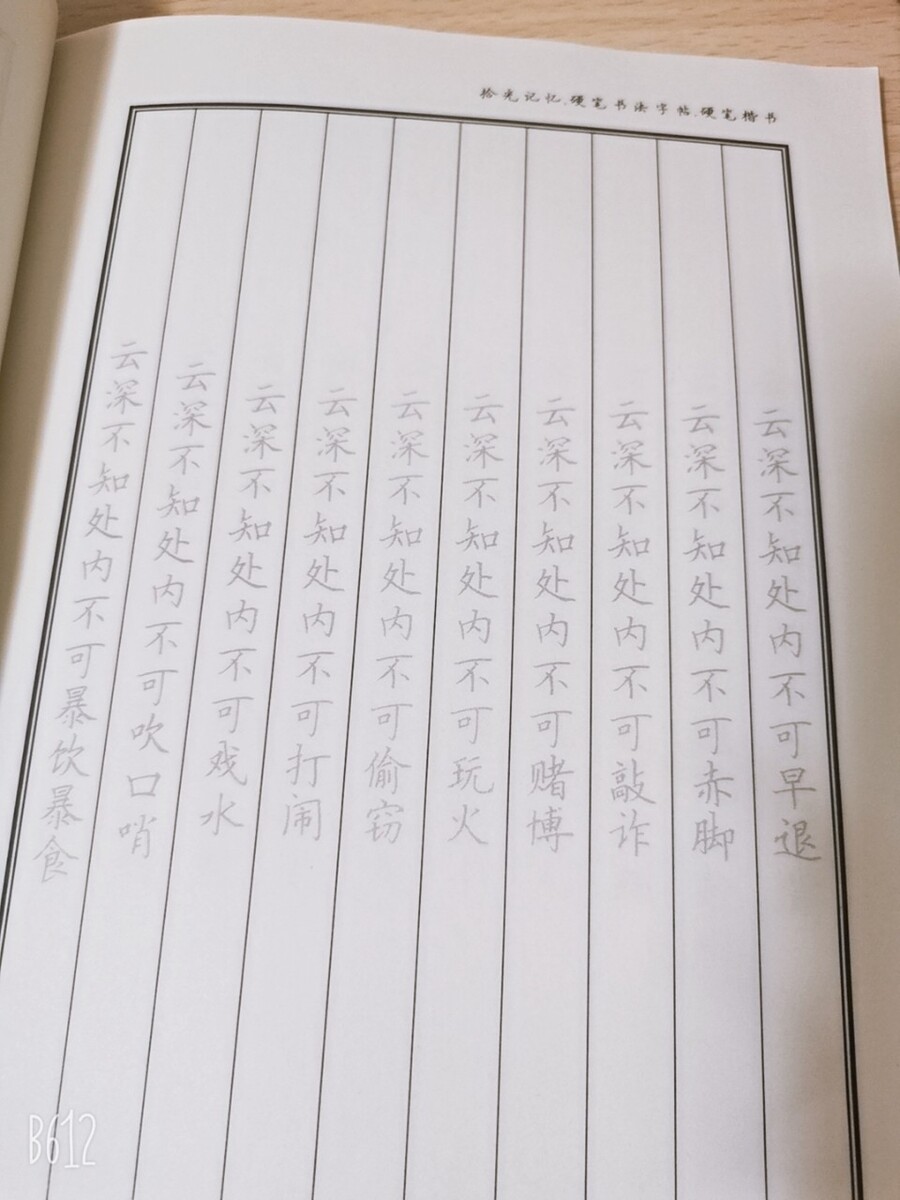 拾光记忆.硬笔书法字帖.硬笔楷书
云深不知处内不可早退
云深不知处内不可赤脚
云深不知处内不可敲诈
云深不知处内不可赌博
云深不知处内不可玩火
云深不知处内不可偷窃
云深不知处内不可打闹
云深不知处内不可戏水
云深不知处内不可吹口哨
云深不知处内不可暴饮暴食
B612